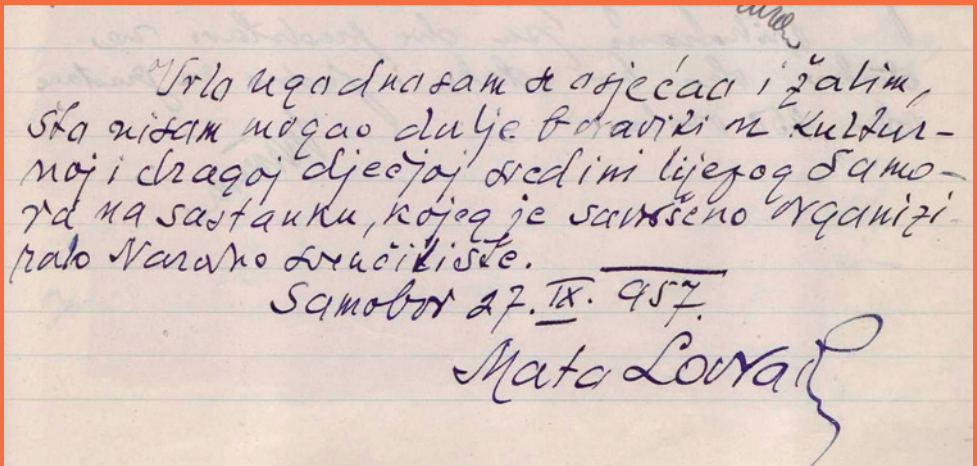 Vrlo ugodno sam se osjećao i žalim,
što nisam mogao dulje boraviti u kultur-
noj i dragoj dječjoj sredini lijepog Samo-
ra na sastanku, kojeg je savršeno organizi-
ralo Narodno sveučilište.
Samobor 27. IX. 957.
Mato Lovrak